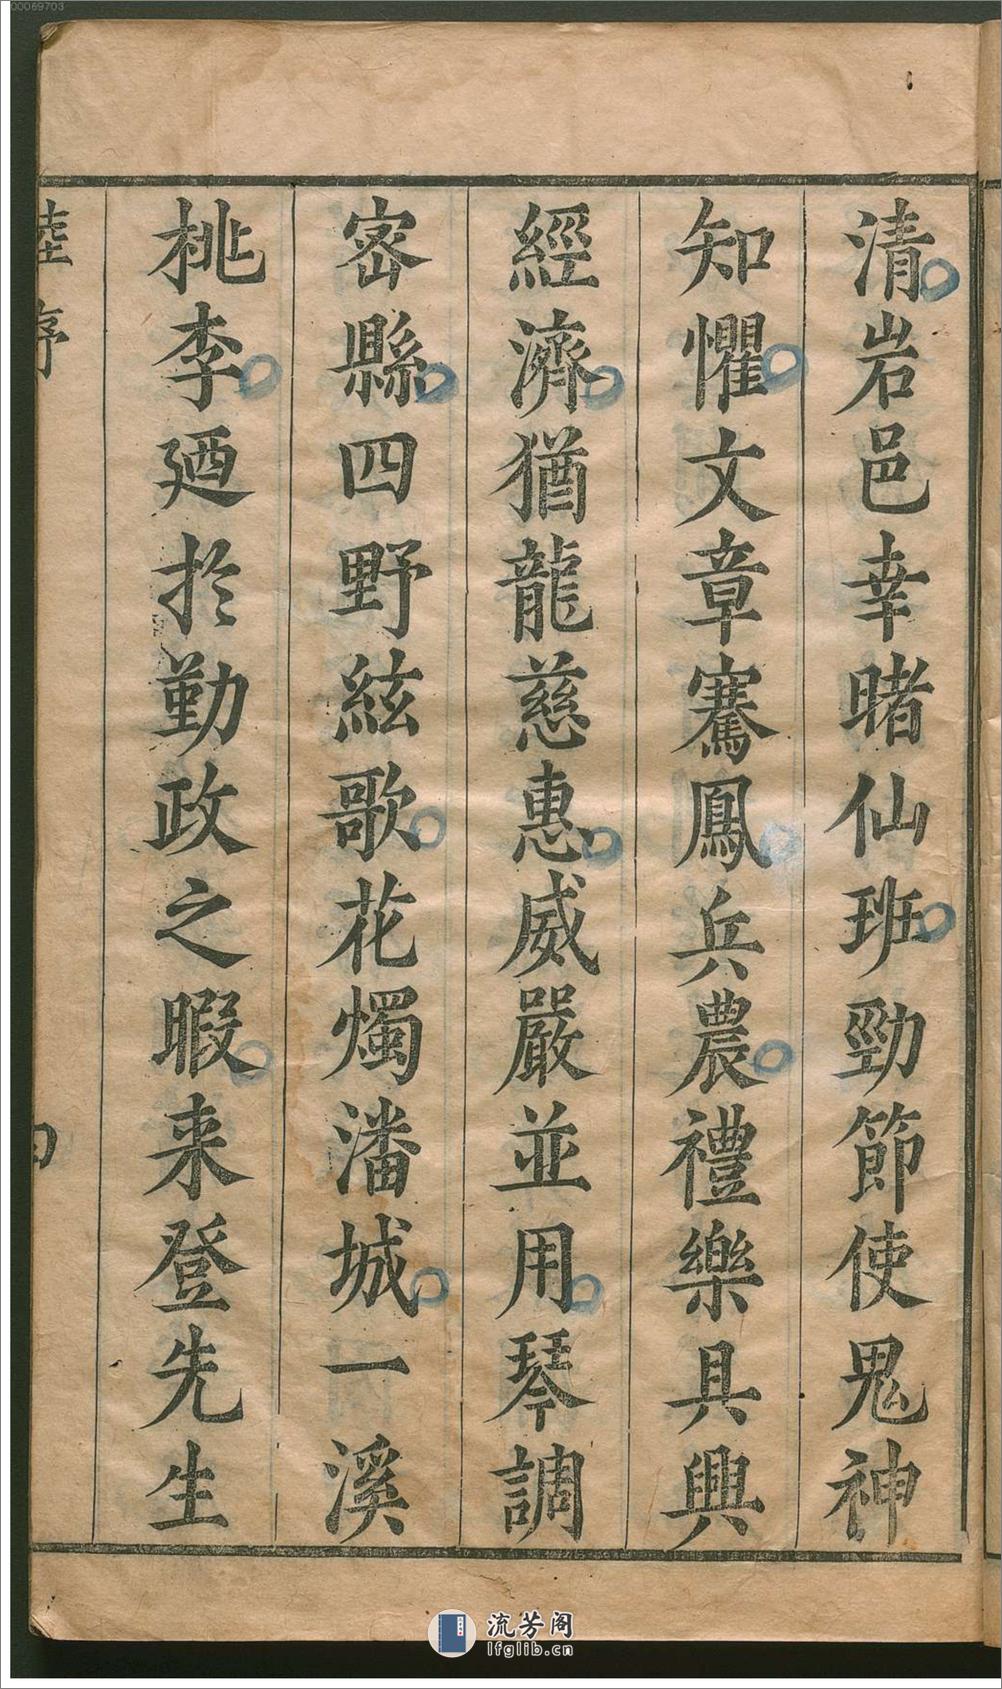 清岩邑幸睹仙班勁節使鬼神
知懼文章騫鳳兵農禮樂具興
經濟猶龍慈惠威嚴並用琴調
宻縣四野絃歌花燭潘城一溪
桃李廼扵勤政之暇来登先生
陸序
四
00069703
流芳阁
lfglib.cn